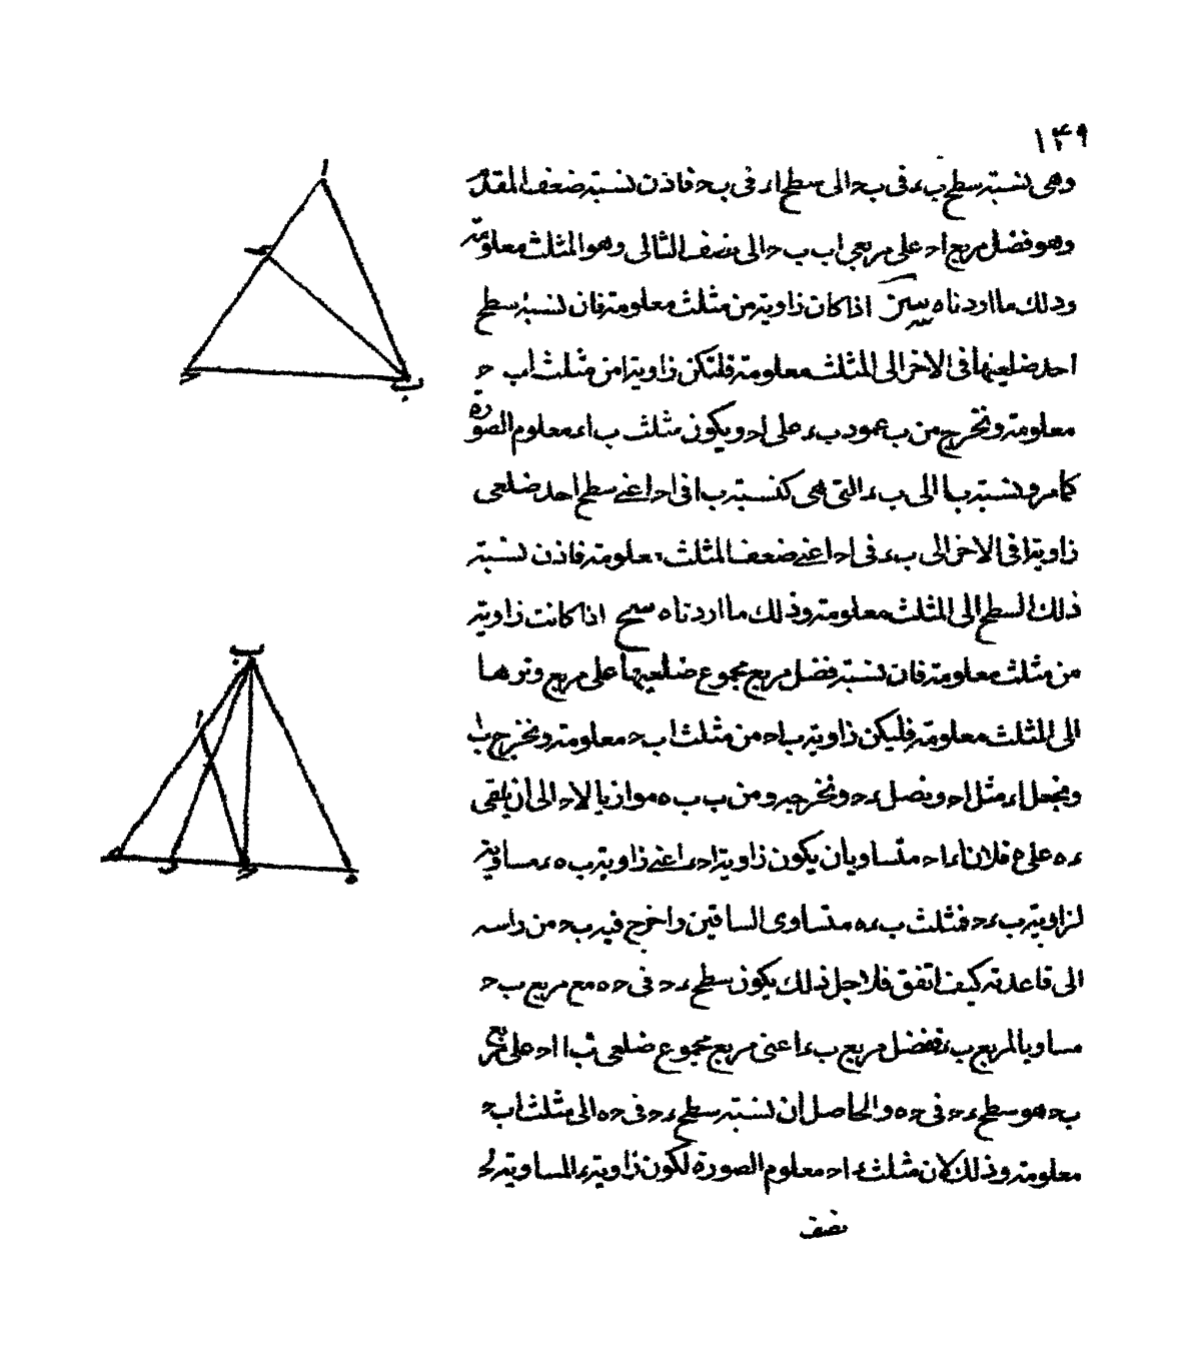 ١٤٩
وهى نسبة سطح ب ء فى ب حـ الى سطح ا ء فى ب حـ فاذن نسبة ضعف المقدم
وهو فضل مربع ا حـ على مربعى ا ب ب حـ الى نصف التالى وهو المثلث معلومة
وذلك ما اردناه سـز اذا كان زاوية من مثلث معلومة فان نسبة سطح
احد ضلعيها فى الاخر الى المثلث معلومة فلتكن زاوية ا من مثلث ا ب حـ
معلومة ونخرج من ب عمود ب ء على ا حـ ويكون مثلث ب ا ء معلوم الصورة
كما مر ونسبة ب ا الى ب ء التى هى كنسبة ب ا فى ا حـ اعنى سطح احد ضلعى
زاوية ا فى الاخر الى ب ء فى ا حـ اعنى ضعف المثلث معلومة فاذن نسبة
ذلك السطح الى المثلث معلومة وذلك ما اردناه سح اذا كانت زاوية
من مثلث معلومة فان نسبة فضل مربع مجموع ضلعيها على مربع وترها
الى المثلث معلومة فليكن زاوية ب ا حـ من مثلث ا ب حـ معلومة ونخرج ب ا
ونجعل ا ء مثل ا حـ ونصل ء حـ ونخرجه ومن ب ب ه موازيا لا حـ الى ان يلقى
ء ه على ه فلان ا ء ا حـ متساويان يكون زاوية ا حـ ء اعنى زاوية ب ه ء مساوية
لزاوية ب ء حـ فمثلث ب ء ه متساوى الساقين واخرج فيه ب حـ من راسه
الى قاعدته كيف اتفق فلاجل ذلك يكون سطح ء حـ فى حـ ه مع مربع ب حـ
مساويا لمربع ب ء ففضل مربع ب ء اعنى مربع مجموع ضلعى ب ا ا حـ على مربع
ب حـ هو سطح ء حـ فى حـ ه والحاصل ان نسبة سطح ء حـ فى حـ ه الى مثلث ا ب حـ
معلومة وذلك لان مثلث ء ا حـ معلوم الصورة لكون زاوية ء المساوية لحـ
نصف